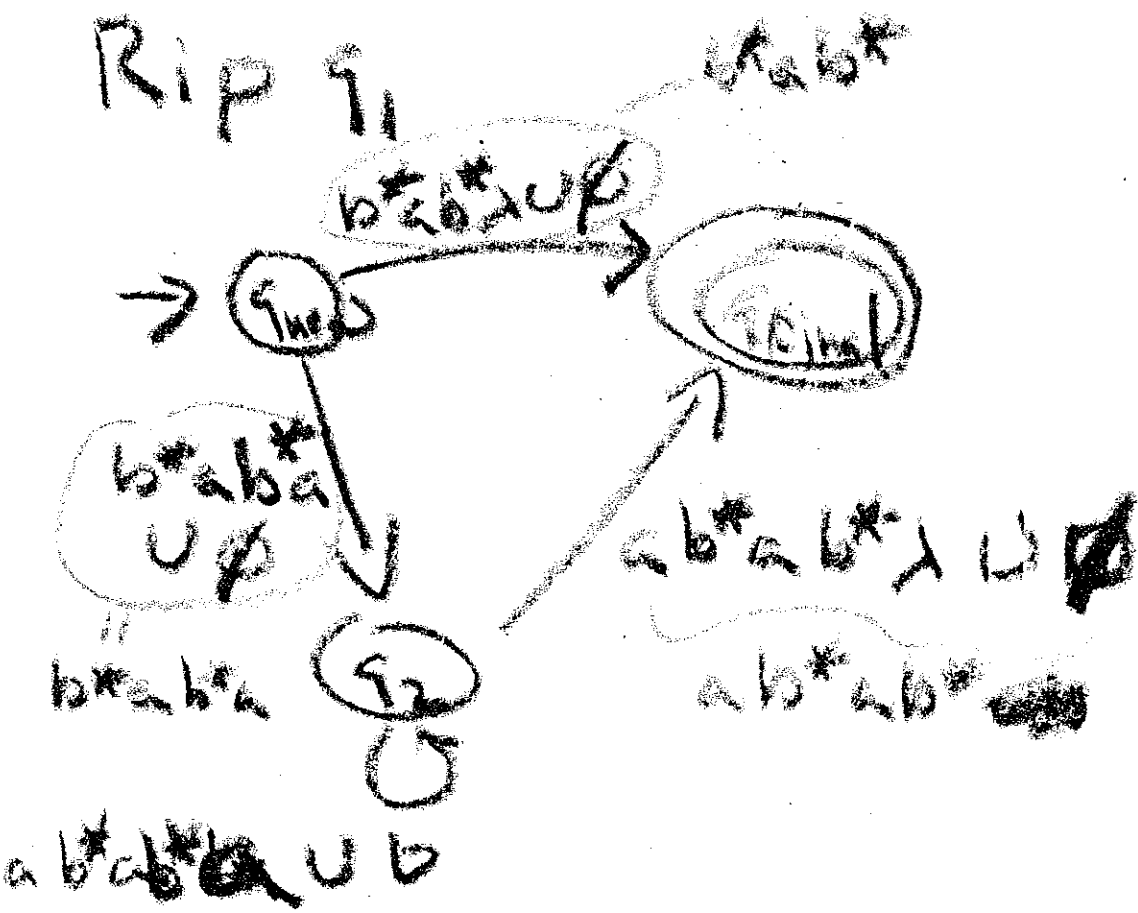 Rip q₁
b*ab*
b*ab*λ∪∅
q_new
q_final
b*ab*a
∪∅
ab*ab*λ ∪ ∅
b*ab*a
q₂
ab*ab*
ab*ab*a ∪ b